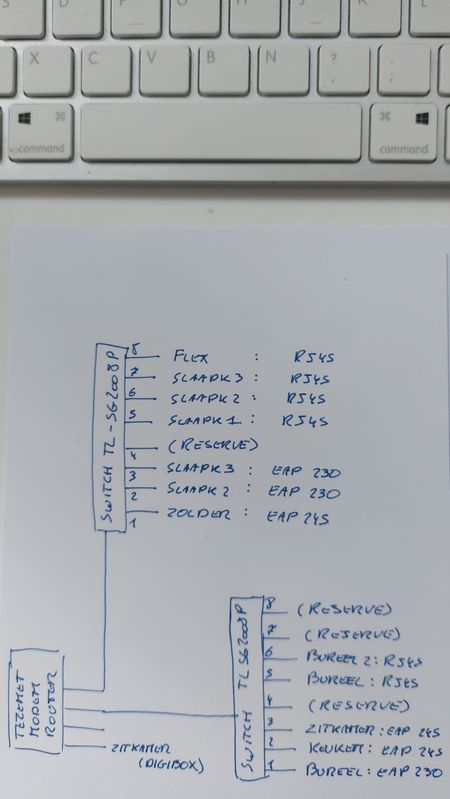 S D F G H J K L
X C V B N ? ; :
⌘ command
⌘ command
SWITCH TL-SG2008P
8 FLEX : RJ45
7 SLAAPK 3 : RJ45
6 SLAAPK 2 : RJ45
5 SLAAPK 1 : RJ45
4 (RESERVE)
3 SLAAPK 3 : EAP 230
2 SLAAPK 2 : EAP 230
1 ZOLDER : EAP 245
SWITCH TL SG2008P
8 (RESERVE)
7 (RESERVE)
6 BUREEL 2 : RJ45
5 BUREEL : RJ45
4 (RESERVE)
3 ZITKAMER : EAP 245
2 KEUKEN : EAP 245
1 BUREEL : EAP 230
MODEM
ROUTER
ZITKAMER
(DIGIBOX)